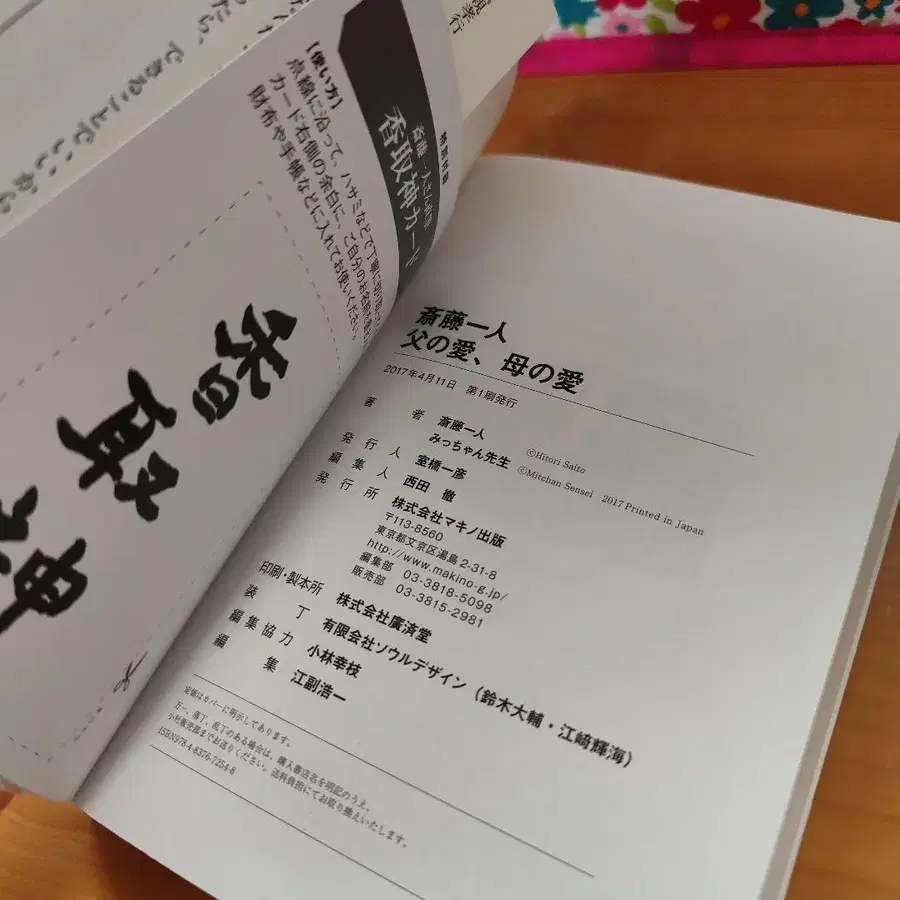 できることでいいから
特別付録
香取神カード
【使い方】
点線に沿って、ハサミなどで丁寧に
カード右側の余白に、ご自分のお名前を
財布や手帳などに入れてお使いください。
香取神
斎藤一人
父の愛、母の愛
2017年4月11日 第1刷発行
著 者 斎藤一人 ©Hitori Saito
みっちゃん先生 ©Mitchan Sensei 2017 Printed in Japan
発行人 室橋一彦
編集人 西田 徹
発行所 株式会社マキノ出版
〒113-8560
東京都文京区湯島2-31-8
http://www.makino-g.jp/
編集部 03-3818-5098
販売部 03-3815-2981
印刷・製本所 株式会社廣済堂
装 丁 有限会社ソウルデザイン(鈴木大輔・江﨑輝海)
編集協力 小林幸枝
編 集 江副浩一
定価はカバーに明示してあります。
万一、落丁、乱丁のある場合は、購入書店名を明記のうえ、
小社販売部までお送りください。送料負担にてお取り換えいたします。
ISBN978-4-8376-7254-8